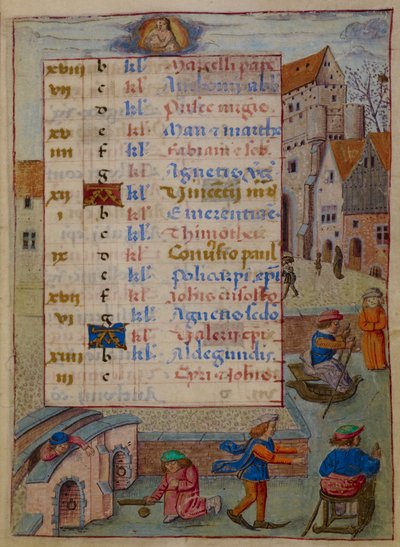 xviii b kl' Marcelli pape
vii c kl' Anthonii abb
d Prisce
xv e kl' marthe
iiii f kl' Fabiani z seb.
g kl' Agnetis
xii A kl' Vincētij
i b kl' Emerentiane
c kl' Thimothei
ix d kl' pauli
e kl' Policarpi epi
xvii f kl' Johīs crisosto
vi g kl' Agnetis scdo
A kl' Valerii epi
xiiii b kl' Aldegundis
iii c